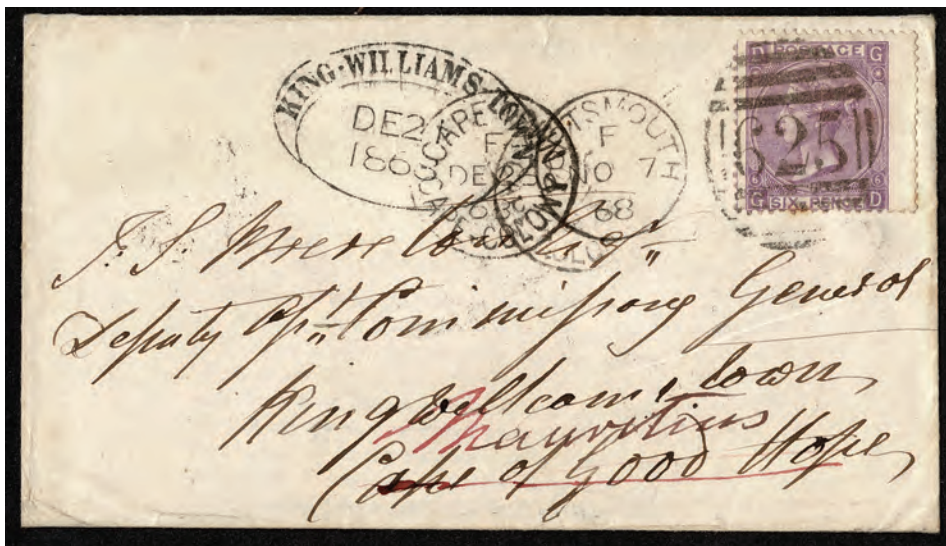 KING-WILLIAMS-TOWN
DE2
186
CAPE COLONY
DE 25
68
PORTSMOUTH
F
NO 7
68
625
D POSTAGE G
6 6
G SIX-PENCE D
J. S.
Deputy Asst. Commissary General
King Williams town
Mauritius
Cape of Good Hope